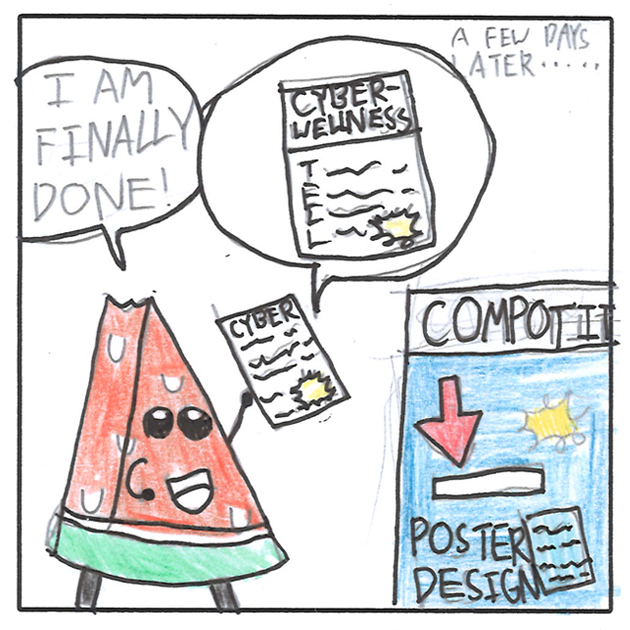 A FEW DAYS
LATER.....
I AM
FINALLY
DONE!
CYBER-
WELLNESS
T
E
L
L
CYBER
COMPOTII
POSTER
DESIGN